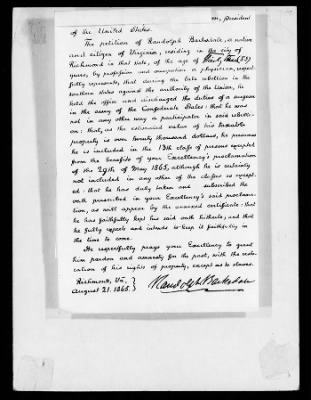 President
of the United States.
The petition of Randolph Barksdale, a native
and citizen of Virginia, residing in the city of
Richmond in that State, of the age of thirty three (33)
years, by profession and occupation a physician, respect-
fully represents, that during the late rebellion in the
southern states against the authority of the Union, he
held the office and discharged the duties of a surgeon
in the army of the Confederate States: that he was
not in any other way a participator in said rebell-
ion: that, as the estimated value of his taxable
property is over twenty thousand dollars, he presumes
he is included in the 13th class of persons excepted
from the benefits of your Excellency's proclamation
of the 29th of May 1865, although he is certainly
not included in any other of the classes so except-
ed: that he has duly taken and subscribed the
oath prescribed in your Excellency's said proclama-
tion, as will appear by the annexed certificate: that
he has faithfully kept his said oath hitherto, and that
he fully expects and intends to keep it faithfully in
the time to come.
He respectfully prays your Excellency to grant
him pardon and amnesty for the past, with the resto-
ration of his rights of property, except as to slaves.
Richmond, Va,
August 21. 1865.
Randolph Barksdale